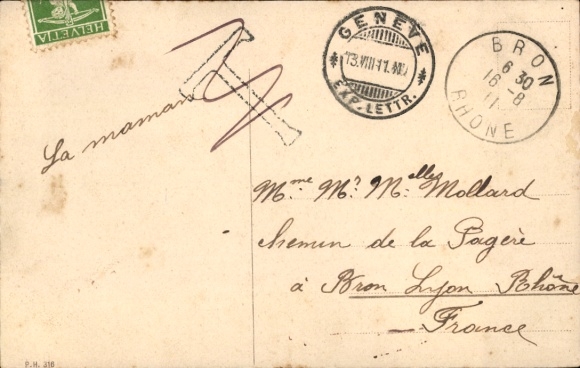 HELVETIA
GENÈVE
13.VIII 11.
EXP. LETTR.
BRON
6 30
16 - 8
11
RHÔNE
T
La maman
Mme Mr Melles Mollard
chemin de la Pagère
à Bron Lyon Rhône
France
P.H. 316